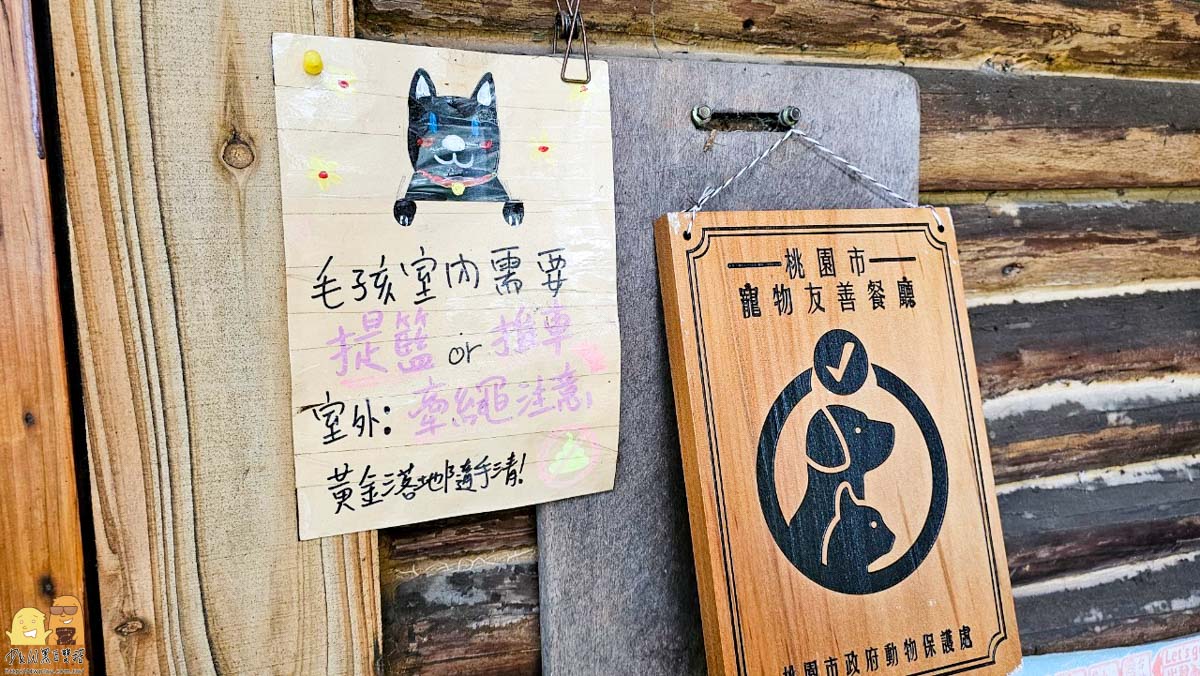 毛孩室內需要
提籃 or 推車
室外: 牽繩注意
黃金落地隨手清!
桃園市
寵物友善餐廳
桃園市政府動物保護處
Let's g